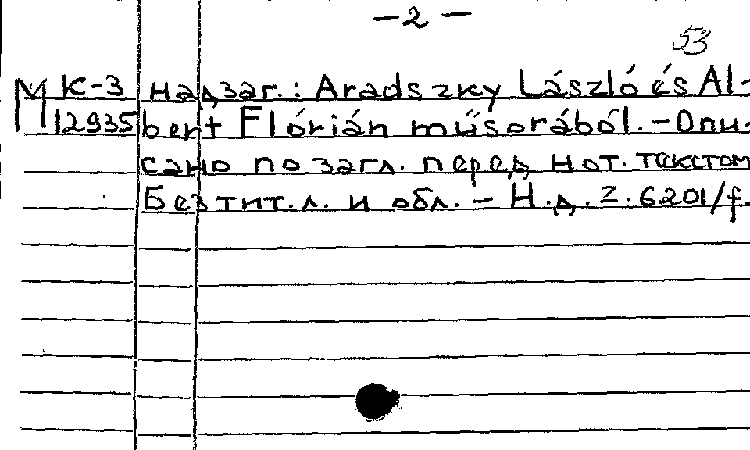 — 2 —
53
М К-3 Надзаг.: Aradszky László és Al-
12935 bert Flórián műsorából. — Опи-
сано по загл. перед нот. текстом
Без тит. л. и обл. — Н.д. Z. 6201/f.